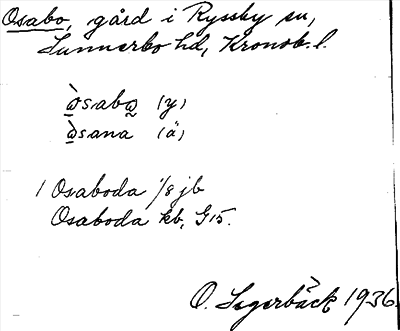 Osabo, gård i Ryssby sn,
Sunnerbo hd, Kronob. l.
ò̱sabo̰ (y)
ò̱sana (ä)
1 Osaboda 1/8 jb
Osaboda kb, G15.
O. Segerbäck 1936.